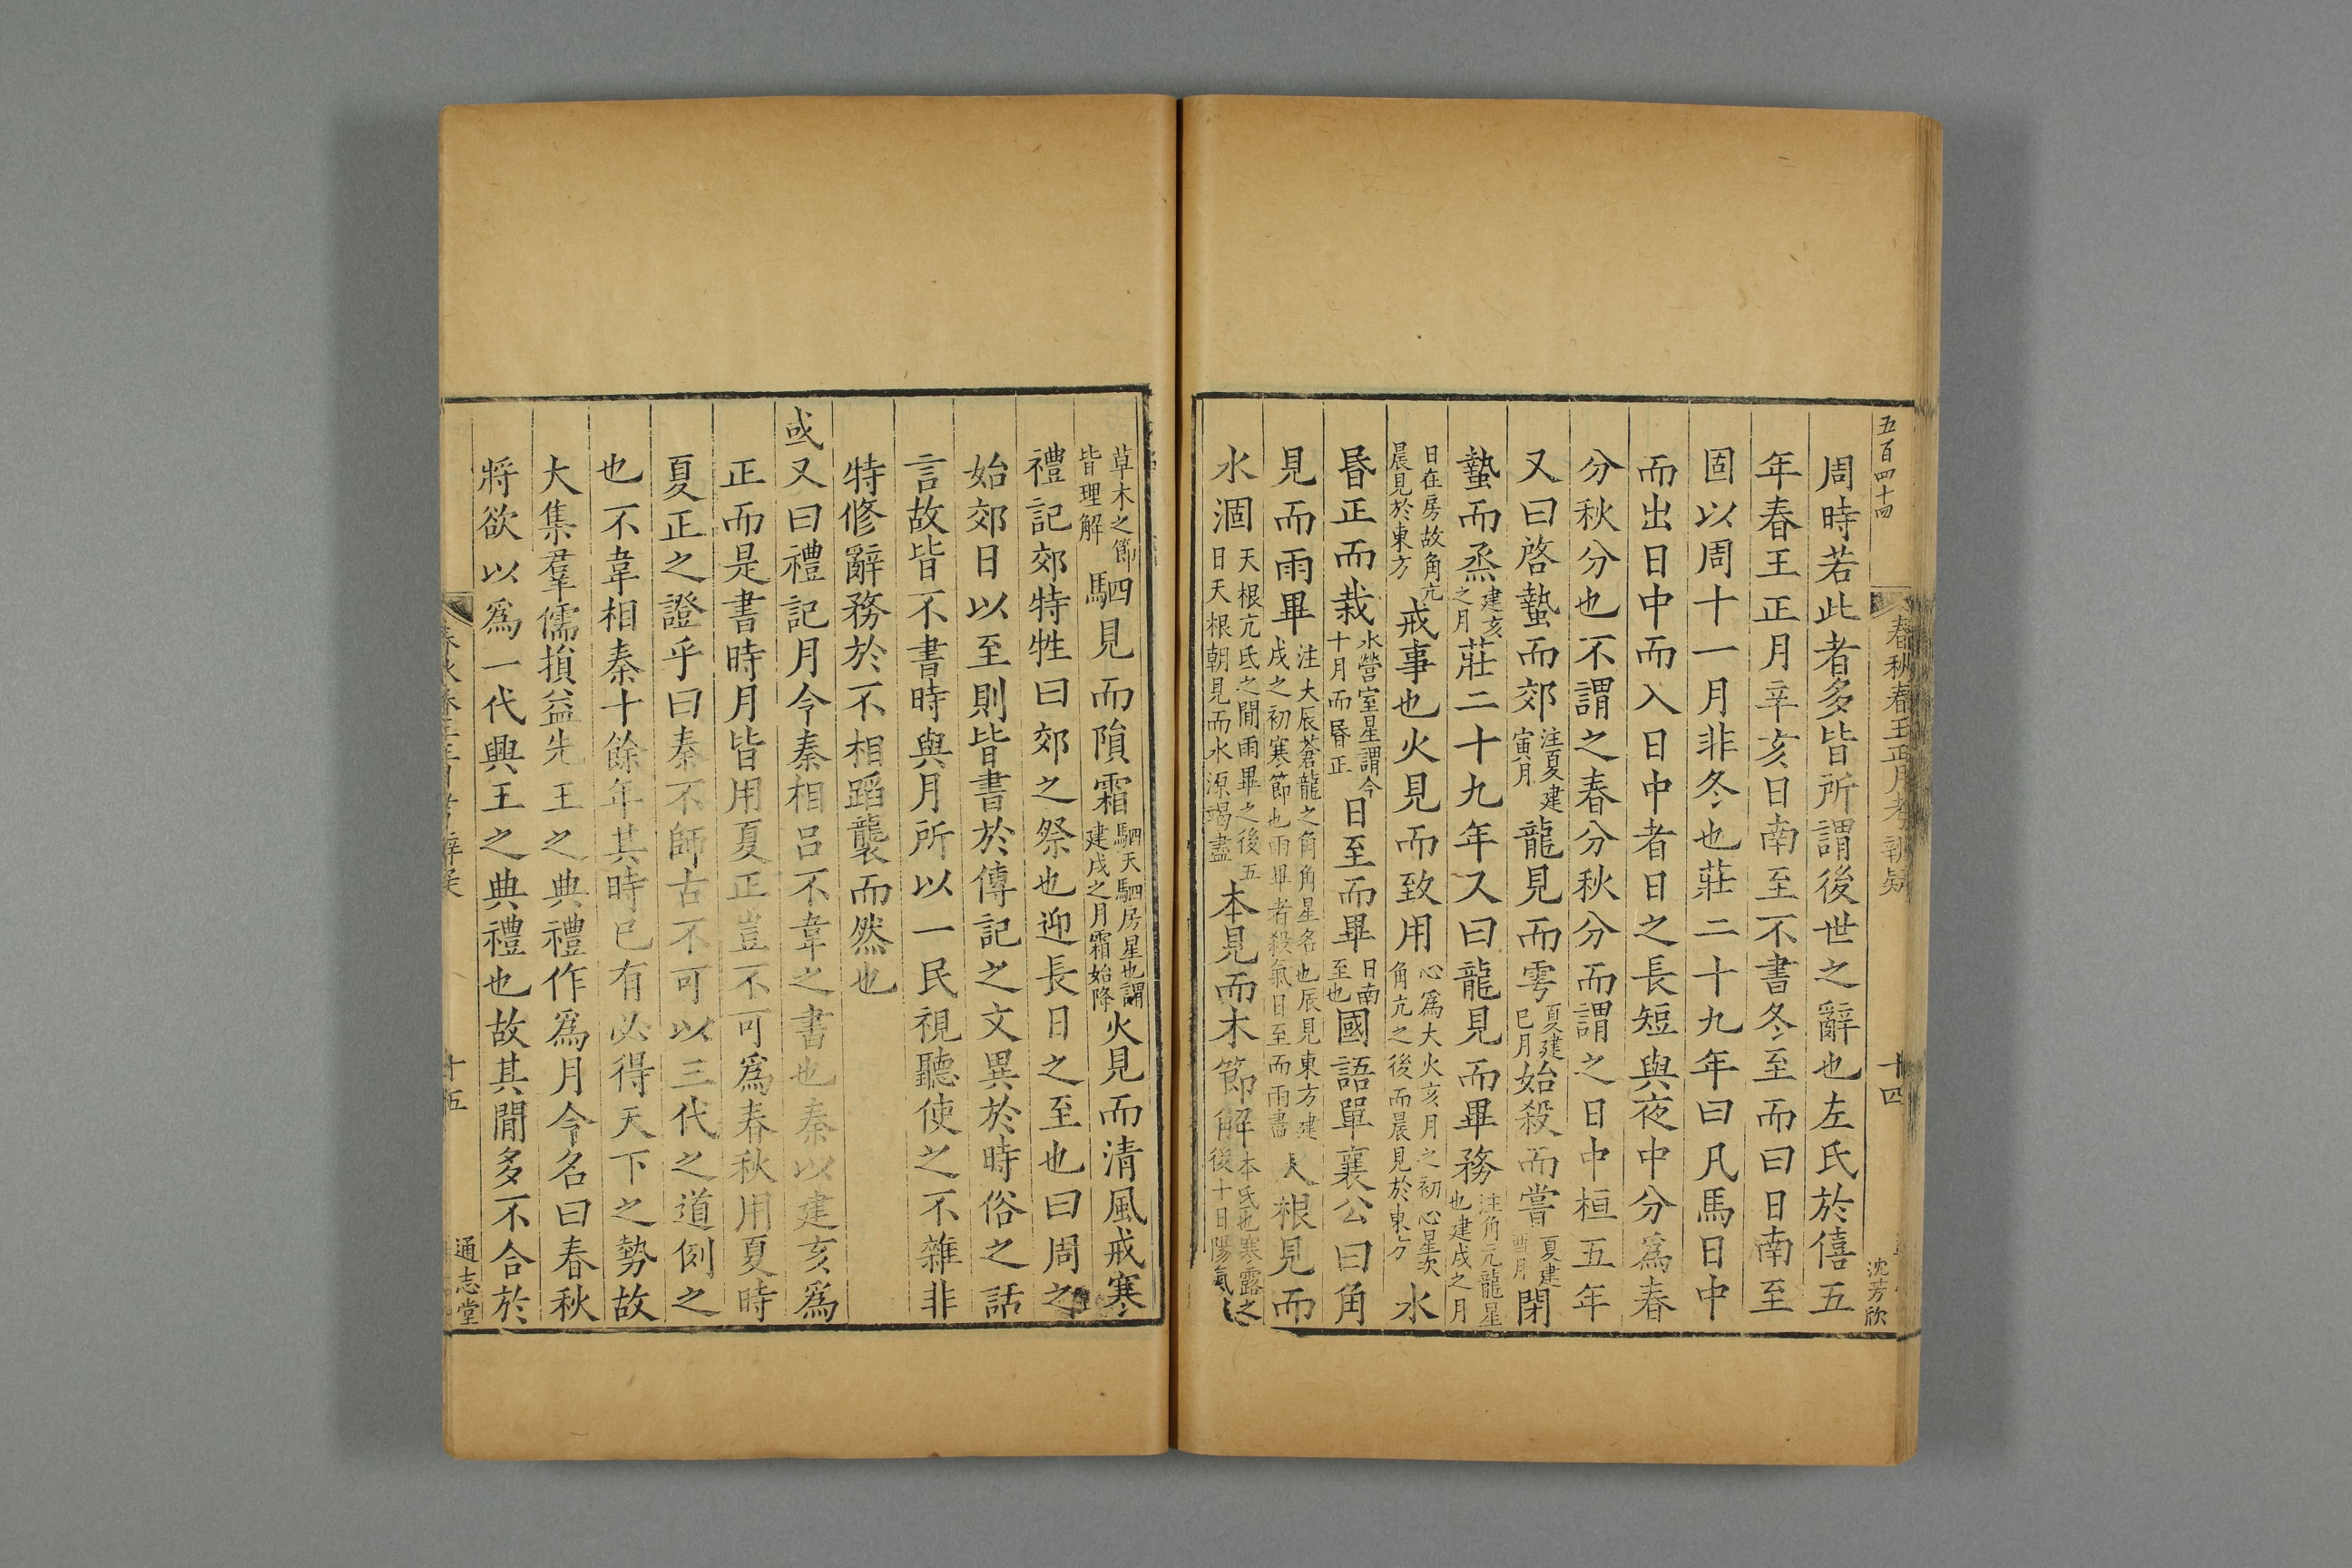 五百四十四
春秋春王正月考辨疑
十四
沈芳欣
周時若此者多皆所謂後世之辭也左氏於僖五
年春王正月辛亥日南至不書冬至而曰日南至
固以周十一月非冬也莊二十九年曰凡馬日中
而出日中而入日中者日之長短與夜中分為春
分秋分也不謂之春分秋分而謂之日中桓五年
又曰啓蟄而郊注夏建寅月龍見而雩夏建巳月始殺而嘗夏建酉月閉
蟄而烝建亥之月莊二十九年又曰龍見而畢務注角亢龍星也建戌之月
日在房故角亢晨見於東方戒事也火見而致用心為大火亥月之初心星次角亢之後而晨見於東方水
昬正而栽水營室星謂今十月而昬正日至而畢日南至也國語單襄公曰角
見而雨畢注大辰蒼龍之角角星名也辰見東方建戌之初寒節也雨畢者殺氣日至而雨盡天根見而
水涸天根亢氐之間雨畢之後五日天根朝見而水源竭盡本見而木節解本氐也寒露之後十日陽氣
草木之節皆理解駟見而隕霜駟天駟房星也謂建戌之月霜始降火見而清風戒寒
禮記郊特牲曰郊之祭也迎長日之至也曰周之
始郊日以至則皆書於傳記之文異於時俗之話
言故皆不書時與月所以一民視聽使之不雜非
特修辭務於不相蹈襲而然也
或又曰禮記月令秦相呂不韋之書也秦以建亥為
正而是書時月皆用夏正豈不可為春秋用夏時
夏正之證乎曰秦不師古不可以三代之道例之
也不韋相秦十餘年其時已有必得天下之勢故
大集羣儒損益先王之典禮作為月令名曰春秋
將欲以為一代興王之典禮也故其間多不合於
十五
通志堂